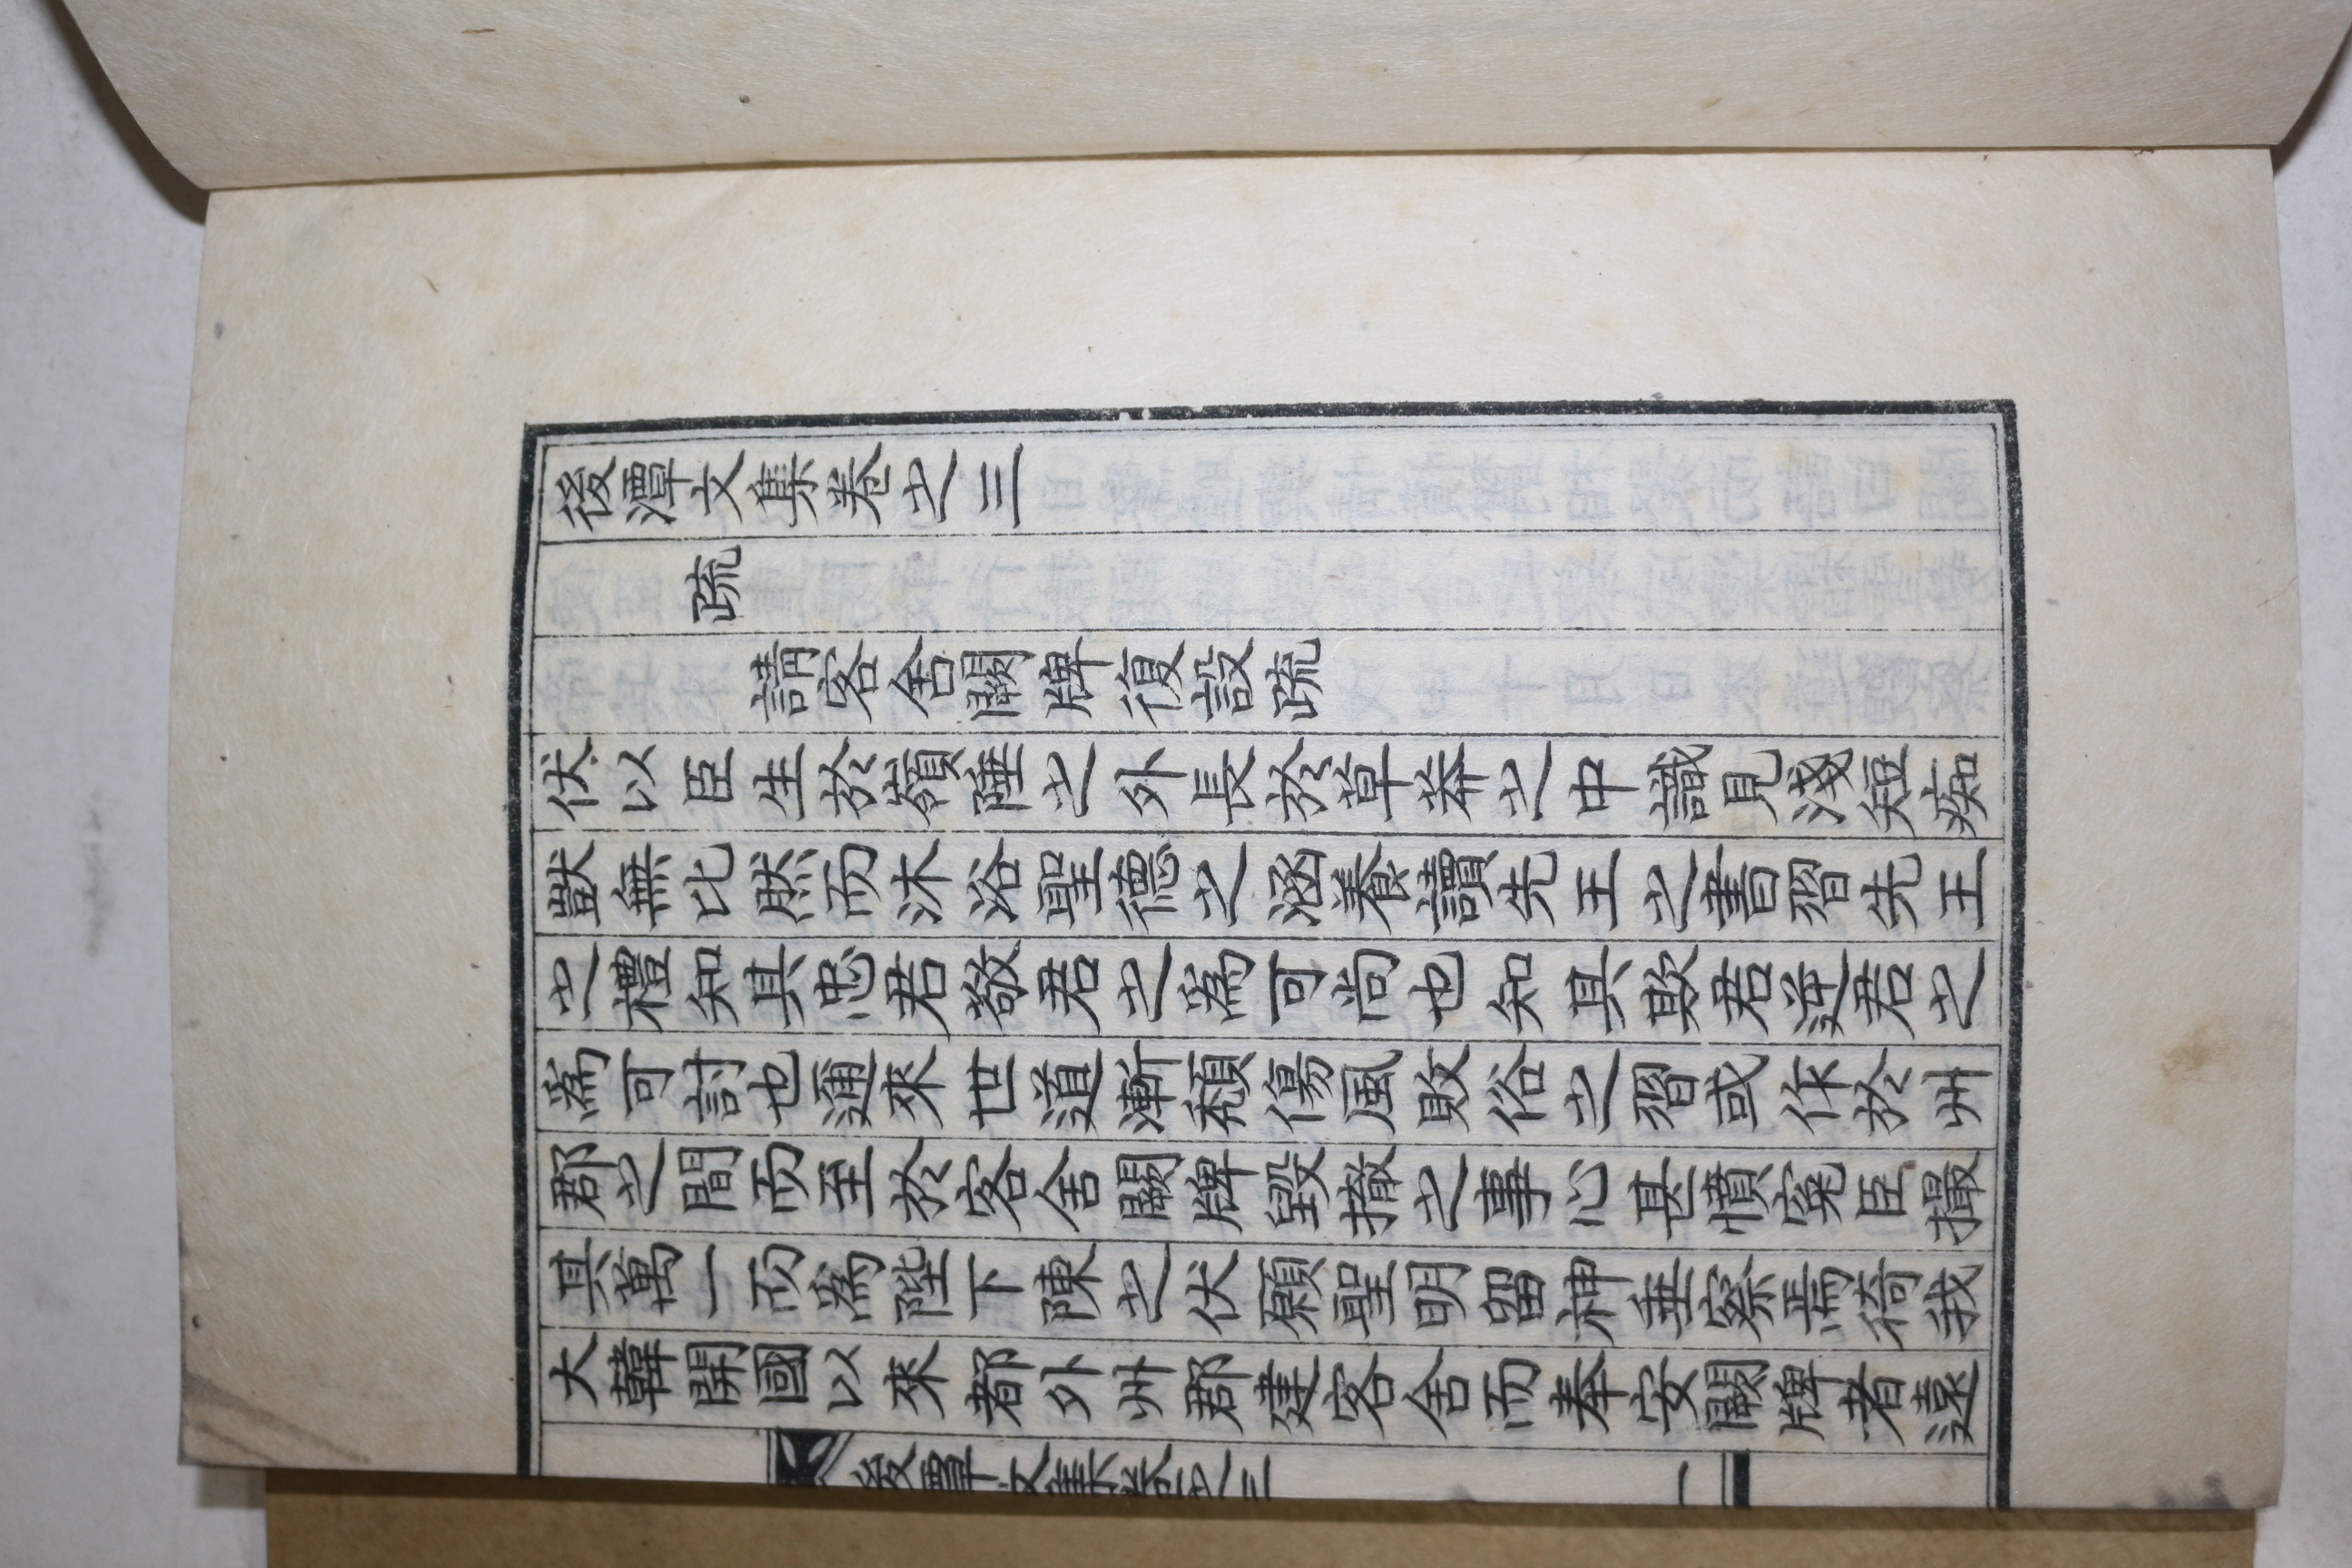 後潭文集卷之三
疏
請客舍闕牌復設疏
伏以臣生於嶺陲之外長於草莽之中識見淺短癡
獃無比然而沐浴聖德之涵養讀先王之書習先王
之禮知其忠君敬君之爲可尚也知其欺君逆君之
爲可討也邇來世道漸頹傷風敗俗之習或作於州
郡之間而至於客舍闕牌毁撤之事心甚憤寃臣撮
其萬一而爲陛下陳之伏願聖明留神垂察焉猗我
大韓開國以來都外州郡建客舍而奉安闕牌者遠
後潭文集卷之三 一